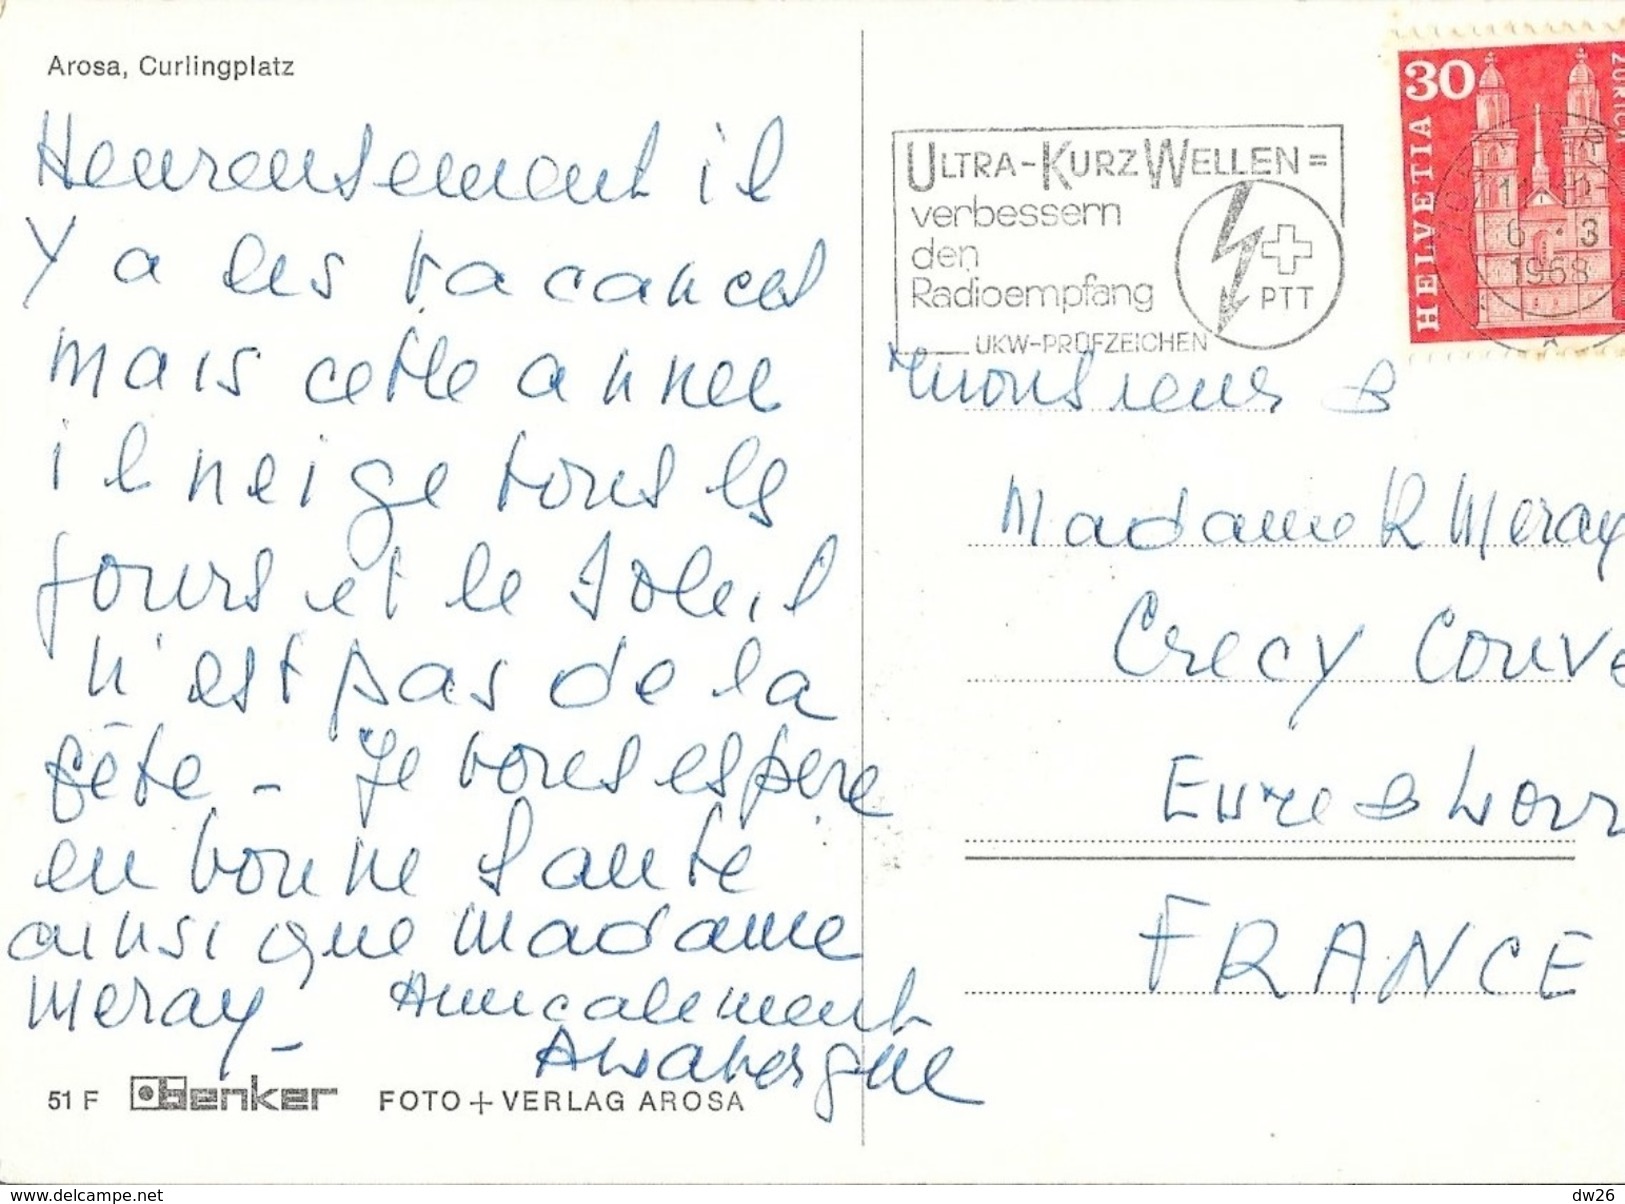 Arosa, Curlingplatz
Heureusement il
Y a les vacances
mais cette année
il neige tous les
jours et le soleil
n'est pas de la
fête - Je vous espère
en bonne santé
ainsi que Madame
Meray - Amicalement
51 F Benker FOTO + VERLAG AROSA
ULTRA-KURZWELLEN=
verbessern
den
Radioempfang
UKW-PRÜFZEICHEN
PTT
30
HELVETIA
ZÜRICH
6 . 3
1968
Monsieur &
Madame R Meray
Crecy Couve
Eure & Loir
FRANCE
www.delcampe.net
dw26